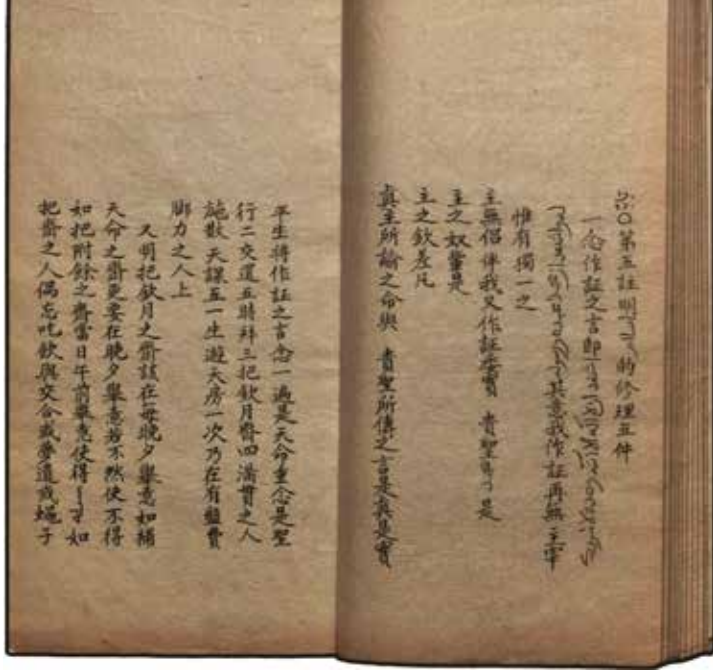 第五証明 的修理五件
一念作証之言即
其意我作証再無主宰
惟有獨一之
主無侶伴我又作証委實 貴聖 是
主之奴輩是
主之欽差凡
真主所諭之命與 貴聖所傳之言是真是實
平生將作証之言念一遍是天命重念是聖
行二交還五時拜三把欽月齋四滿貫之人
施散天課五一生遊天房一次乃在有盤費
脚力之人上
又明把欽月之齋該在每晚夕舉意如補
天命之齋更要在晚夕舉意若不然使不得
如把附餘之齋當日午前舉意使得 如
把齋之人偶忘吃飲與交合或夢遺或蠅子